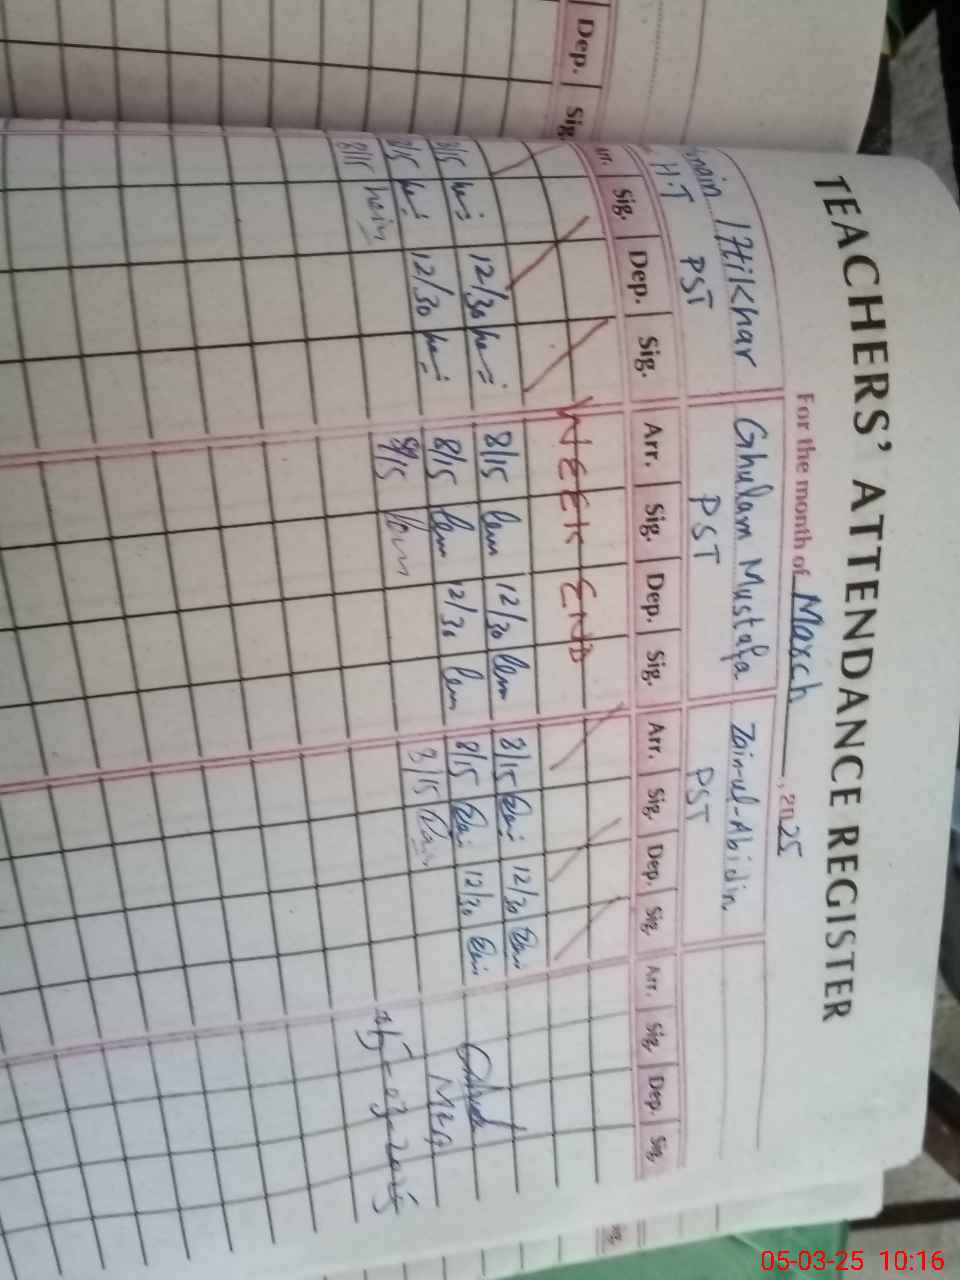 Dep. Sig.
TEACHERS' ATTENDANCE REGISTER
For the month of March, 2025
Iftikhar Ghulam Mustafa Zain-ul-Abidin
H.T PST PST PST
Arr. Sig. Dep. Sig. Arr. Sig. Dep. Sig. Arr. Sig. Dep. Sig. Arr. Sig. Dep. Sig.
WEEK END
8/15 12/30 8/15 12/30 8/15 12/30
8/15 12/30 8/15 12/30 8/15 12/30
8/15 8/15 8/15
05-03-2025
05-03-25 10:16